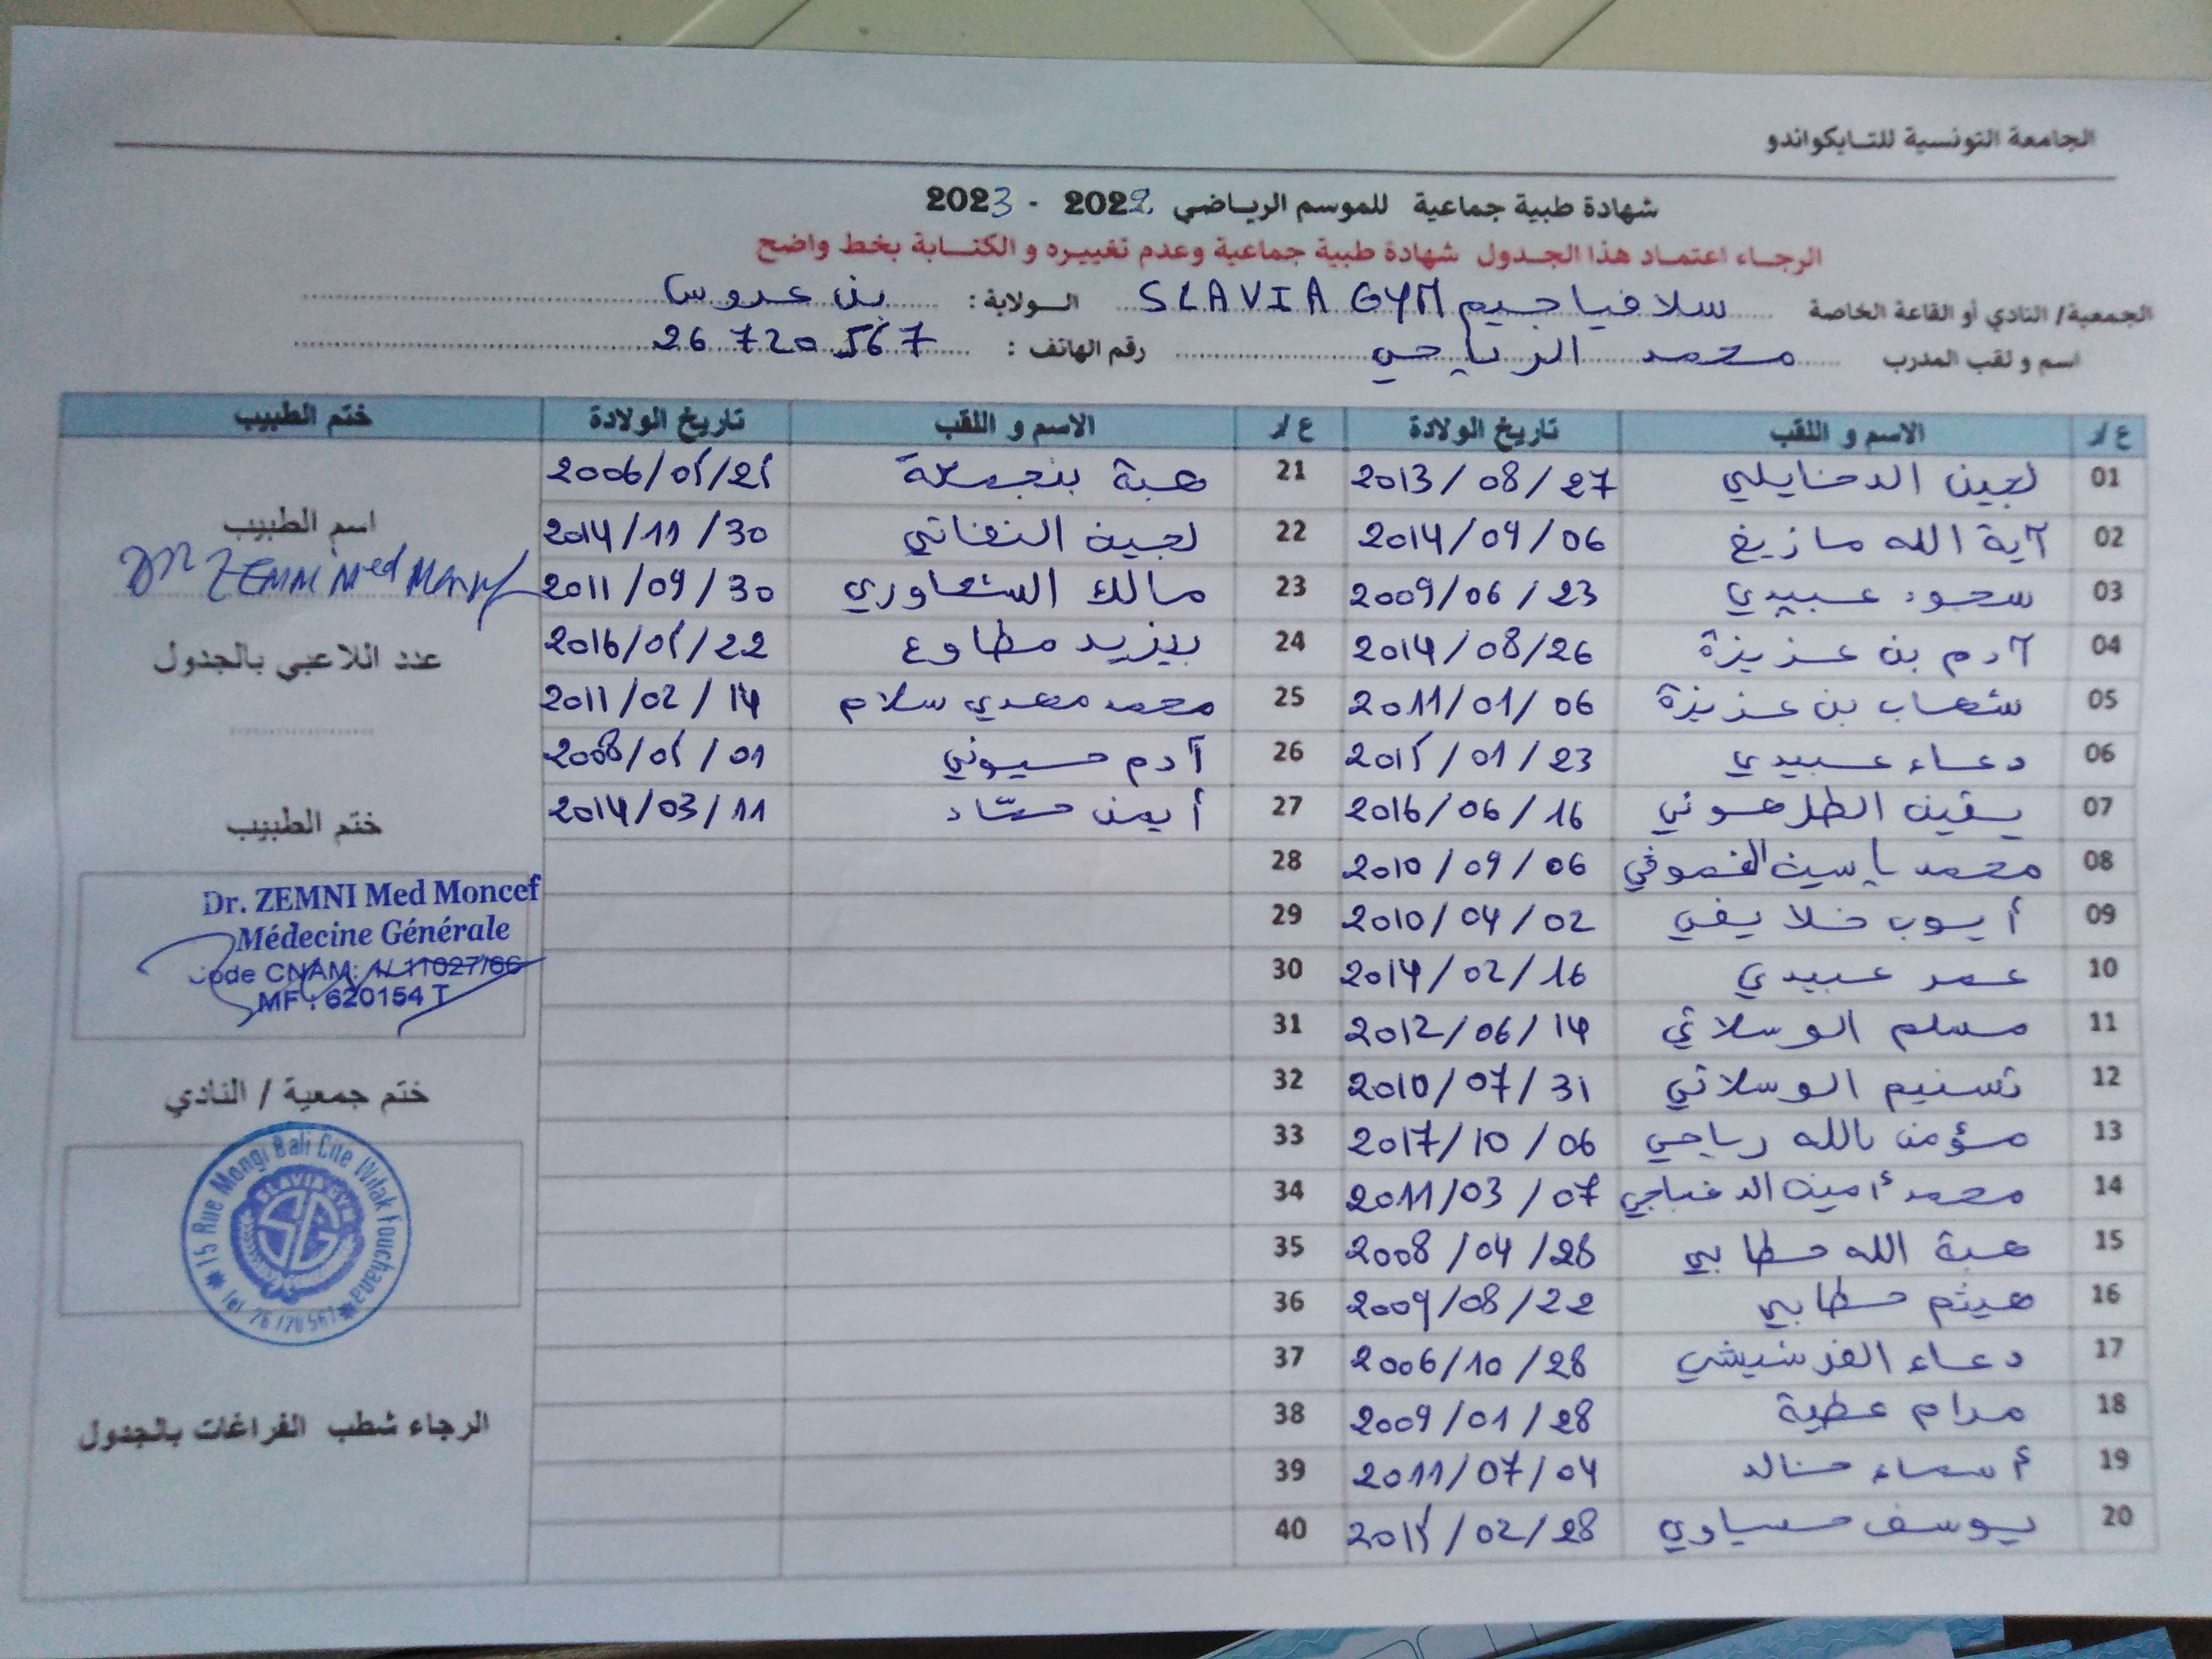 الجامعة التونسية للتايكواندو
شهادة طبية جماعية للموسم الرياضي 2022 - 2023
الرجاء اعتماد هذا الجدول شهادة طبية جماعية وعدم تغييره و الكتابة بخط واضح
الجمعية/ النادي أو القاعة الخاصة سلافيا جيم SLAVIA GYM الولاية: بن عروس
اسم و لقب المدرب محمد الرياحي رقم الهاتف : 26 720 567
ع/ر الاسم و اللقب تاريخ الولادة ع/ر الاسم و اللقب تاريخ الولادة ختم الطبيب
01 لجين الدخايلي 2013/08/27 21 هبة 2006/05/25
02 آية الله مازيغ 2014/09/06 22 لجين النفاتي 2014/11/30
03 سجود عبيدي 2009/06/23 23 مالك الشعاوري 2011/09/30
04 آدم بن عزيزة 2014/08/26 24 يزيد مطاوع 2016/05/22
05 شهاب بن عزيزة 2011/01/06 25 محمد مهدي سلام 2011/02/14
06 دعاء عبيدي 2015/01/23 26 آدم حسيوني 2008/05/01
07 يقين الطرهوني 2016/06/16 27 أيمن 2014/03/11
08 محمد ياسين 2010/09/06 28
09 أيوب خلايفي 2010/04/02 29
10 عمر عبيدي 2014/02/16 30
11 مسلم الوسلاتي 2012/06/14 31
12 تسنيم الوسلاتي 2010/07/31 32
13 مؤمن بالله رياحي 2017/10/06 33
14 محمد أمين الدغباجي 2011/03/07 34
15 هبة الله حطابي 2008/04/28 35
16 هيثم حطابي 2009/08/22 36
17 دعاء الفرشيشي 2006/10/28 37
18 مرام عطية 2009/01/28 38
19 أسماء خالد 2011/07/04 39
20 يوسف عيساوي 2015/02/28 40
اسم الطبيب
DR ZEMNI Med Moncef
عدد اللاعبي بالجدول
ختم الطبيب
Dr. ZEMNI Med Moncef
Médecine Générale
Code CNAM: 1/ 11027/66
MF : 620154 T
ختم جمعية / النادي
15 Rue Mongi Bali Cite Wifak Fouchana
Tel 26 720 567
SLAVIA GYM
الرجاء شطب الفراغات بالجدول